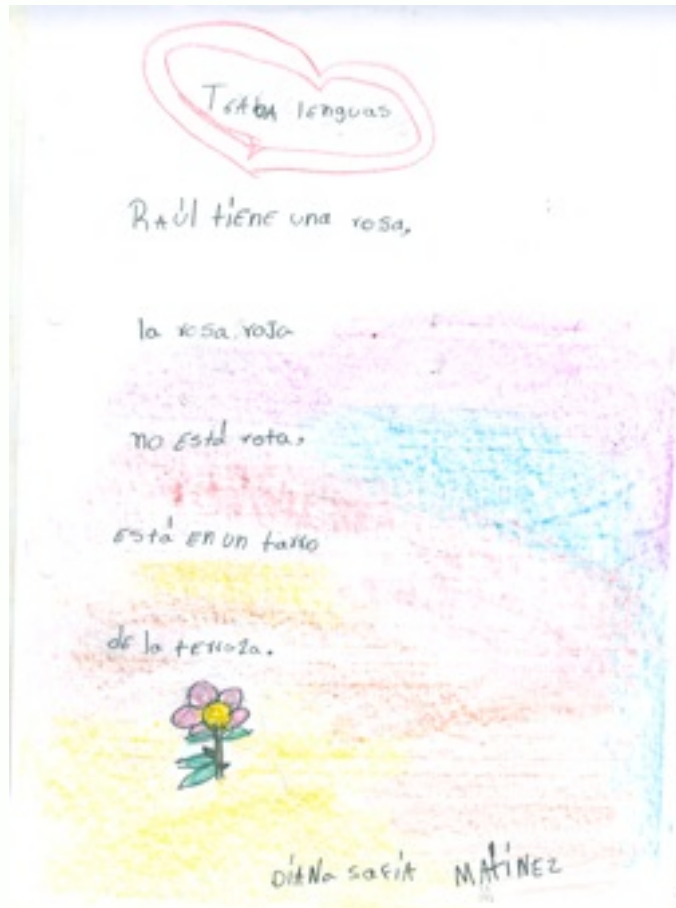 TRABA lenguas
RAúl tiene una rosa,
la rosa roja
no está rota,
está en un tarro
de la terraza.
DIANA SOFIA MATINEZ